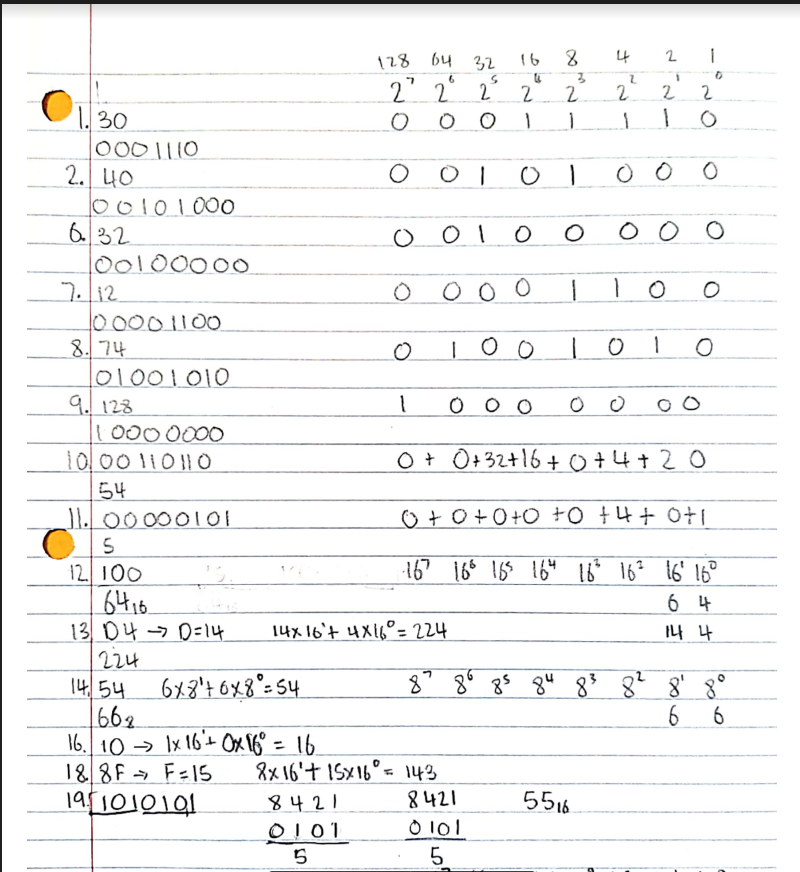 128 64 32 16 8 4 2 1
2⁷ 2⁶ 2⁵ 2⁴ 2³ 2² 2¹ 2⁰
1. 30 0 0 0 1 1 1 1 0
0001110
2. 40 0 0 1 0 1 0 0 0
00101000
6. 32 0 0 1 0 0 0 0 0
00100000
7. 12 0 0 0 0 1 1 0 0
00001100
8. 74 0 1 0 0 1 0 1 0
01001010
9. 128 1 0 0 0 0 0 0 0
10000000
10. 00110110 0 + 0+32+16+0+4+2 0
54
11. 00000101 0+0+0+0+0+4+0+1
5
12 100 16⁷ 16⁶ 16⁵ 16⁴ 16³ 16² 16¹ 16⁰
64₁₆ 6 4
13. D4 → D=14 14x16¹+4x16⁰=224 14 4
224
14. 54 6x8¹+6x8⁰=54 8⁷ 8⁶ 8⁵ 8⁴ 8³ 8² 8¹ 8⁰
66₈ 6 6
16. 10 → 1x16¹+0x16⁰= 16
18. 8F → F=15 8x16¹+15x16⁰= 143
19. 1010101 8421 8421 55₁₆
0101 0101
5 5